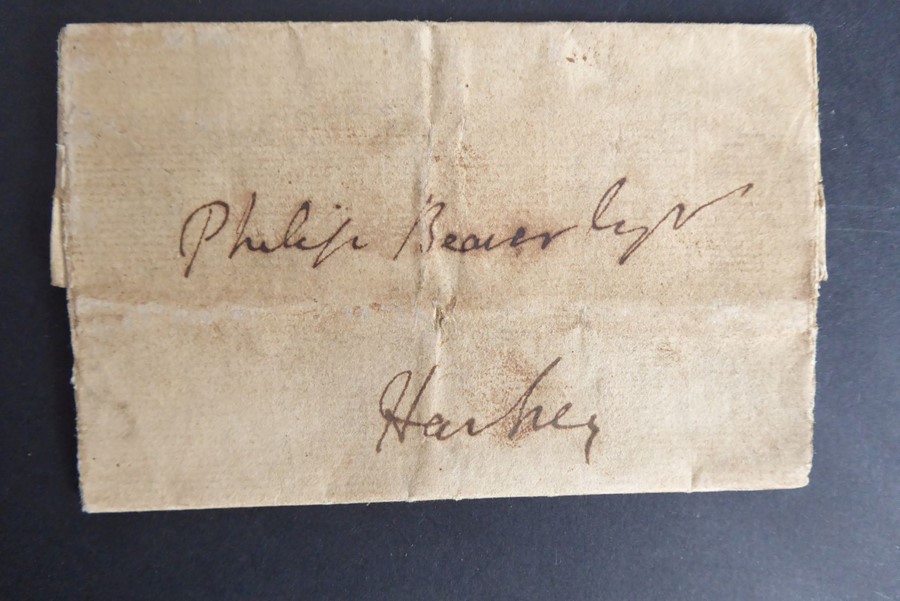 Philip Beaver Esqr
Hankey